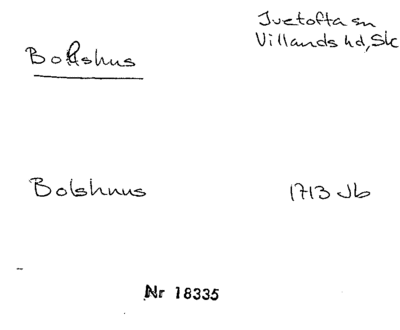 Ivetofta sn
Villands hd, Sk
Bolshus
Bolshuus
1713 Jb
Nr 18335